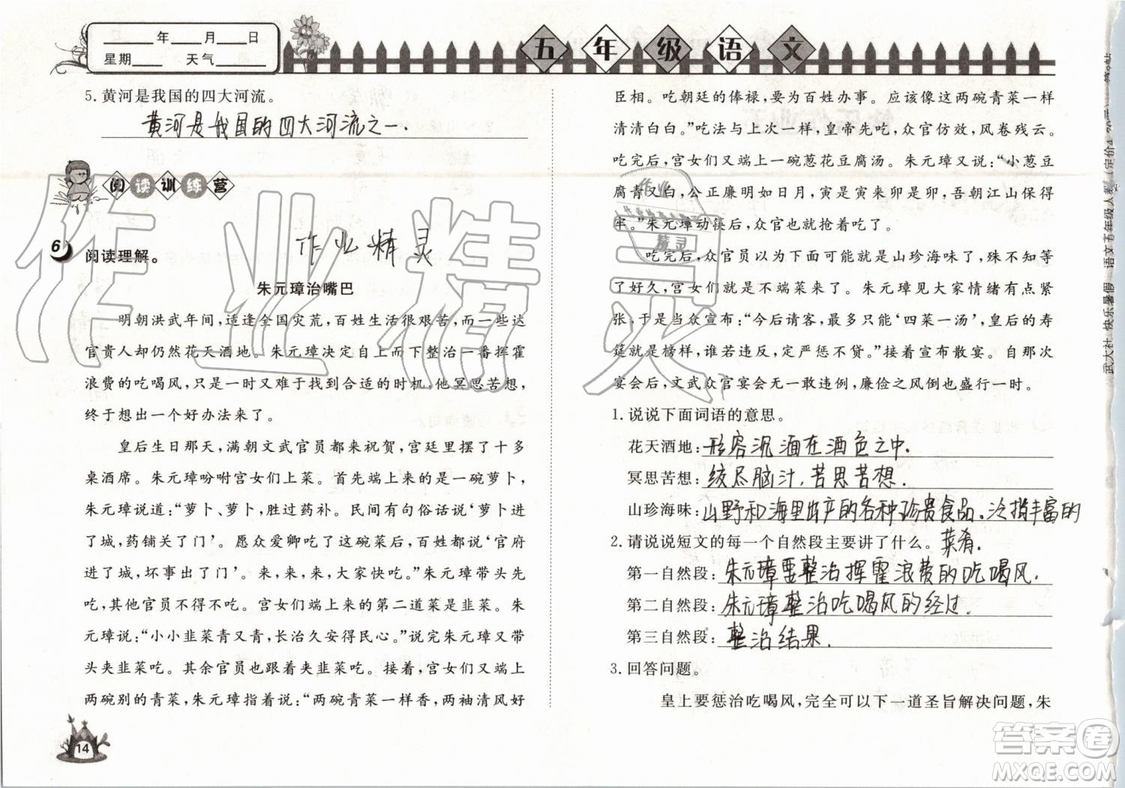 ____年____月____日
星期____ 天气____
五年级语文
5. 黄河是我国的四大河流。
黄河是我国的四大河流之一.
阅读训练营
6 阅读理解。
作业精灵
朱元璋治嘴巴
明朝洪武年间，适逢全国灾荒，百姓生活非常艰苦，一些达
官贵人却仍然花天酒地。朱元璋决定自上而下整治一番挥霍
浪费的吃喝风，只是一时难于找到合适的时机。他冥思苦想，
终于想出一个好办法来了。
皇后生日那天，满朝文武官员都来祝贺，宫廷里摆了好多
桌酒席。朱元璋吩咐宫女们上菜。首先端上来的是一碗萝卜，
朱元璋说道：“萝卜，萝卜，胜过药补。民间有句俗话说‘萝卜进
了城，药铺关了门’。愿众爱卿吃了这碗菜后，百姓都说‘官府
进了城，坏事出了门’。来，来，来，大家快吃。”朱元璋带头先
吃，其他官员不得不吃。宫女们端上来的第二道菜是韭菜。朱
元璋说：“小小韭菜青又青，长治久安得民心。”说完朱元璋又带
头夹韭菜吃。其余官员也跟着夹韭菜吃。接着，宫女们又端上
两碗别的青菜，朱元璋指着说：“两碗青菜一样香，两袖清风好
14
臣相。吃朝廷的俸禄，要为百姓办事。应该像这两碗青菜一样
清清白白。”吃法与上次一样，皇帝先吃，众官仿效，风卷残云。
吃完以后，宫女们又端上一碗葱花豆腐汤。朱元璋又说：“小葱豆
腐青又白，公正廉明如日月，寅是寅来卯是卯，吾朝江山保得
牢。”朱元璋动筷后，众官也抢着吃了。
吃完后，众官员以为下面一定是山珍海味了，殊不知等
了好久，宫女们就是不端菜来了。朱元璋见大家情绪有点紧
张，于是当众宣布：“今后请客，最多只能‘四菜一汤’，皇后的寿
筵就是榜样，谁若违反，定严惩不贷。”接着宣布散宴。自那次
宴会后，文武众官无一敢违例，廉俭之风倒也盛行一时。
1. 说说下面词语的意思。
花天酒地：形容沉湎在酒色之中.
冥思苦想：绞尽脑汁，苦思苦想.
山珍海味：山野和海里出产的各种珍贵食品。泛指丰富的
菜肴.
2. 请说说短文的每一个自然段主要讲了什么。
第一自然段：朱元璋要整治挥霍浪费的吃喝风.
第二自然段：朱元璋整治吃喝风的经过.
第三自然段：整治结果.
3. 回答问题。
皇上要惩治吃喝风，完全可以下一道圣旨解决问题，朱
作业精灵
作业精灵
答案圈
MXQE.COM